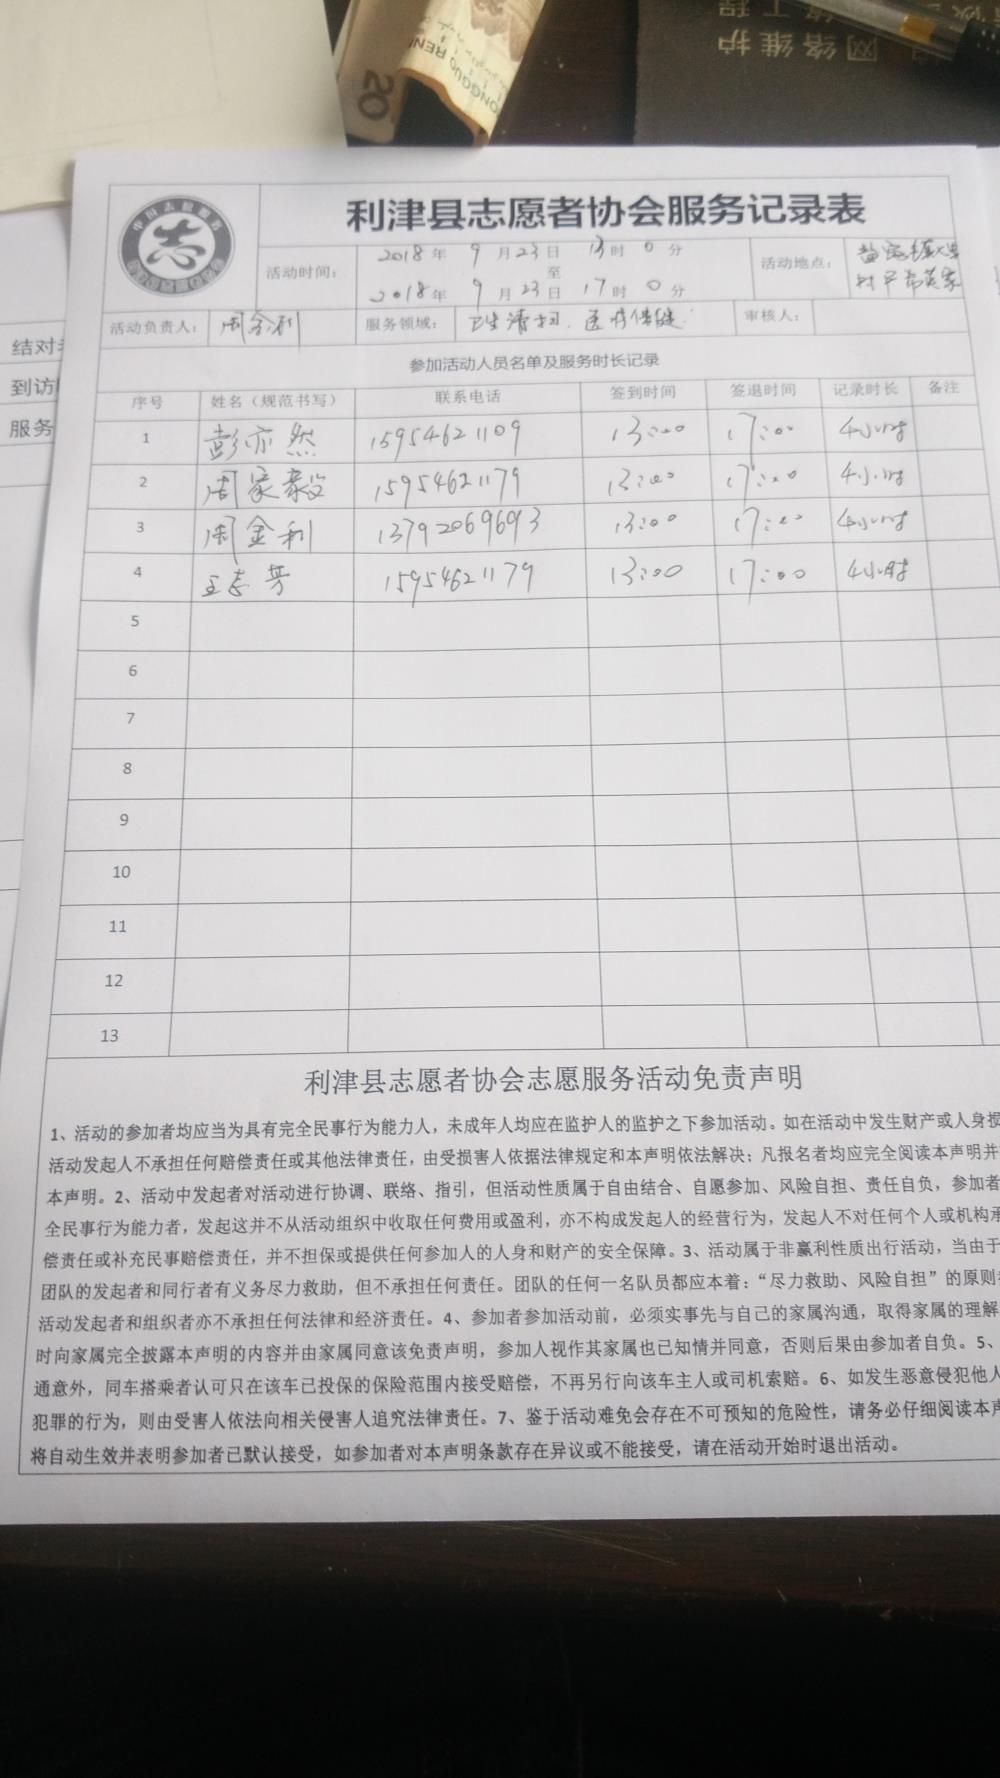 20
网络维护
利津县志愿者协会服务记录表
活动时间：
2018年 9月23日 13时 0分
至
2018年 9月23日 17时 0分
活动地点：
活动负责人：周金利 服务领域：卫生清扫、医疗保健. 审核人：
参加活动人员名单及服务时长记录
序号 姓名（规范书写） 联系电话 签到时间 签退时间 记录时长 备注
1 彭亦然 15954621109 13:00 17:00 4小时
2 周家毅 15954621179 13:00 17:00 4小时
3 周金利 13792069693 13:00 17:00 4小时
4 王志芳 15954621179 13:00 17:00 4小时
5
6
7
8
9
10
11
12
13
利津县志愿者协会志愿服务活动免责声明
1、活动的参加者均应当为具有完全民事行为能力人，未成年人均应在监护人的监护之下参加活动。如在活动中发生财产或人身损
活动发起人不承担任何赔偿责任或其他法律责任，由受损害人依据法律规定和本声明依法解决；凡报名者均应完全阅读本声明并
本声明。2、活动中发起者对活动进行协调、联络、指引，但活动性质属于自由结合、自愿参加、风险自担、责任自负，参加者
全民事行为能力者，发起这并不从活动组织中收取任何费用或盈利，亦不构成发起人的经营行为，发起人不对任何个人或机构承
偿责任或补充民事赔偿责任，并不担保或提供任何参加人的人身和财产的安全保障。3、活动属于非赢利性质出行活动，当由于
团队的发起者和同行者有义务尽力救助，但不承担任何责任。团队的任何一名队员都应本着：“尽力救助、风险自担”的原则
活动发起者和组织者亦不承担任何法律和经济责任。4、参加者参加活动前，必须实事先与自己的家属沟通，取得家属的理解
时向家属完全披露本声明的内容并由家属同意该免责声明，参加人视作其家属也已知情并同意，否则后果由参加者自负。5、
通意外，同车搭乘者认可只在该车已投保的保险范围内接受赔偿，不再另行向该车主人或司机索赔。6、如发生恶意侵犯他人
犯罪的行为，则由受害人依法向相关侵害人追究法律责任。7、鉴于活动难免会存在不可预知的危险性，请务必仔细阅读本声
将自动生效并表明参加者已默认接受，如参加者对本声明条款存在异议或不能接受，请在活动开始时退出活动。
结对
到访
服务